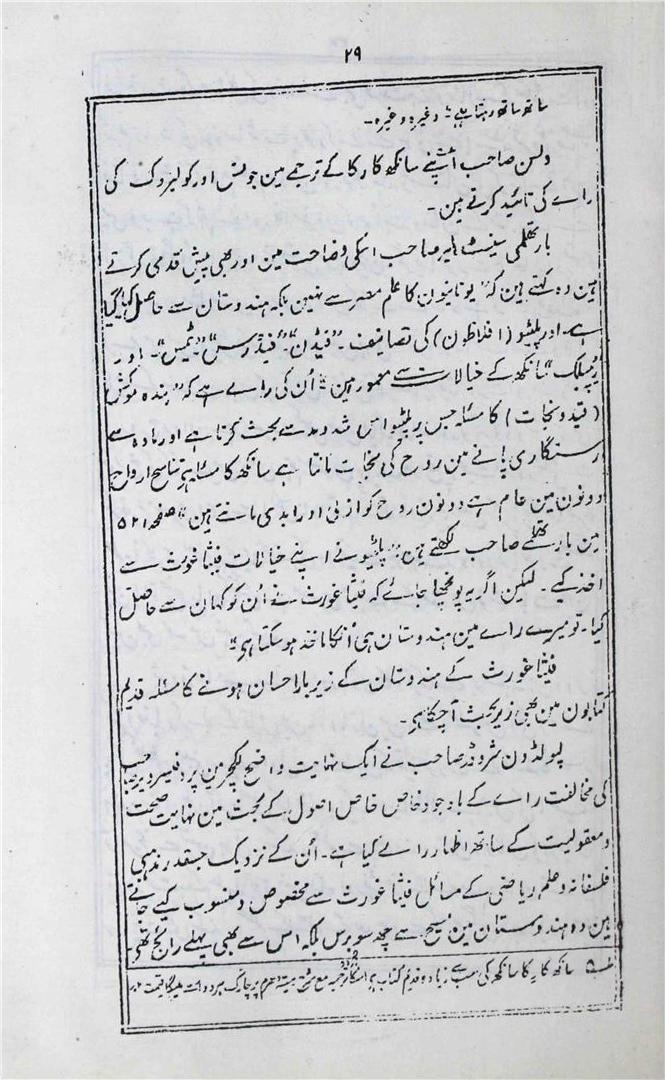 ۲۹
ساتھ ساتھ رہتا ہے ؛ وغیرہ وغیرہ ۔
ولسن صاحب اپنے سانکھ کارکا کے ترجمے مین جونس اور کولبروک کی
راے کی تائید کرتے ہین ۔
بارتھلمی سینٹ ہلیر صاحب اسکی وضاحت مین اور بھی پیش قدمی کرتے
ہین وہ کہتے ہین کہ ”یونانیون کا علم مصر سے نہین بلکہ ہندوستان سے حاصل کیا گیا
ہے ۔ اور پلیٹو (افلاطون) کی تصانیف ۔ ”فیڈن“ ”فیڈرس“ ”ٹمیس“ ۔ اور
”ریپبلک“ سانکھ کے خیالات سے معمور ہین ؛ اُن کی راے ہے کہ ”بندہ موکش
(قید و نجات) کا مسئلہ جس پر پلیٹو اس شد و مد سے بحث کرتا ہے اور مادہ سے
رستگاری پانے مین روح کی نجات مانتا ہے سانکھ کا مسئلہ ہے تناسخ ارواح
دونون مین عام ہے دونون روح کو ازلی اور ابدی مانتے ہین“ صفحہ ۵۲۱
مین بارتھلمے صاحب لکھتے ہین ؛ ”پلیٹو نے اپنے خیالات فیثاغورث سے
اخذ کیے ۔ لیکن اگر یہ پوچھا جائے کہ فیثاغورث نے اُن کو کہان سے حاصل
کیا ۔ تو میرے راے مین ہندوستان ہی اُنکا ماخذ ہوسکتا ہی“
فیثاغورث کے ہندوستان کے زیر بار احسان ہونے کا مسئلہ قدیم
کتابون مین بھی زیر بحث آچکا ہی ۔
لیولڈ ون شروڈر صاحب نے ایک نہایت واضح لکچر مین پروفیسر ویبر صاحب
کی مخالفت راے کے باوجود خاص خاص اصول کے بحث مین نہایت صحت
و معقولیت کے ساتھ اظہار راے کیا ہے ۔ اُن کے نزدیک جسقدر مذہبی
فلسفانہ و علم ریاضی کے مسائل فیثاغورث سے مخصوص و منسوب کیے جاتے
ہین وہ ہندوستان مین مسیح سے چھ سو برس بلکہ اس سے بھی پہلے رائج تھے ۔
سانکھ کارکا سانکھ کی سب سے زیادہ قدیم کتاب ہے اسکا ترجمہ مع شرح